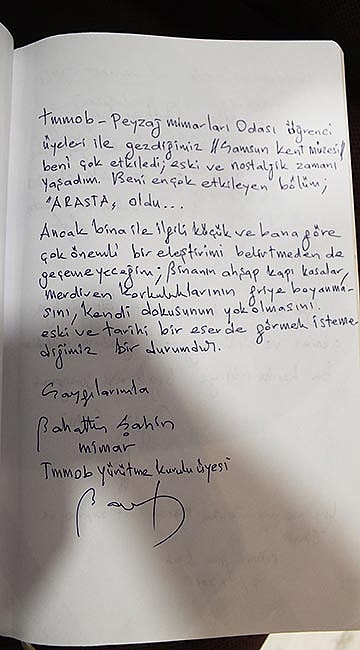 Tmmob - Peyzaj mimarları Odası öğrenci
üyeleri ile gezdiğimiz //Samsun kent müzesi//
beni çok etkiledi, eski ve nostaljik zamanı
yaşadım. Beni en çok etkileyen bölüm;
"ARASTA, oldu...
Ancak bina ile ilgili küçük ve bana göre
çok önemli bir eleştirimi belirtmeden de
geçemeyeceğim; Binanın ahşap kapı kasaları,
merdiven korkuluklarının griye boyanma-
sını, kendi dokusunun yok olmasını.
eski ve tarihi bir eserde görmek isteme-
diğimiz bir durumdur.
Saygılarımla
Bahattin Şahin
mimar
Tmmob yürütme kurulu üyesi